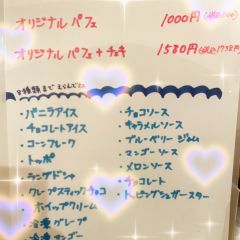 オリジナル パフェ 1000円
オリジナル パフェ + チェキ 1580円
8種類まで えらんでネ
・バニラアイス
・チョコレートアイス
・コーンフレーク
・トッポ
・ラングドシャ
・クレープスティックチョコ
・ホイップクリーム
・冷凍グレープ
・冷凍マンゴー
・チョコソース
・キャラメルソース
・ブルーベリージャム
・マンゴーソース
・メロンソース
・チョコレート
・トッピングシュガースター